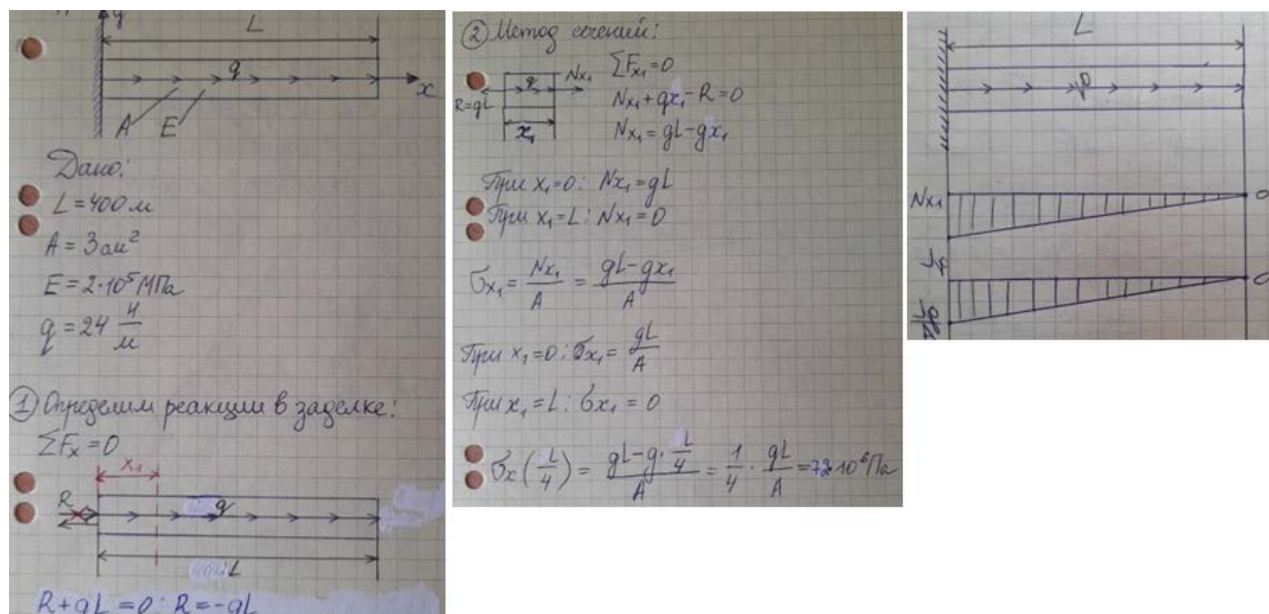 y
L
q
x
A E
Дано:
L = 400 м
A = 3 см²
E = 2·10⁵ МПа
q = 24 Н/м
① Определим реакции в заделке:
ΣFx = 0
x₁
R
q
L
R + qL = 0; R = -qL
② Метод сечений:
q Nx₁
R = qL
x₁
ΣFx₁ = 0
Nx₁ + qx₁ - R = 0
Nx₁ = qL - qx₁
При x₁ = 0: Nx₁ = qL
При x₁ = L: Nx₁ = 0
σx₁ = Nx₁/A = (qL - qx₁)/A
При x₁ = 0: σx₁ = qL/A
При x₁ = L: σx₁ = 0
σx(L/4) = (qL - q·L/4)/A = 1/4 · qL/A = 72·10⁶ Па
L
q
Nx₁
0
0